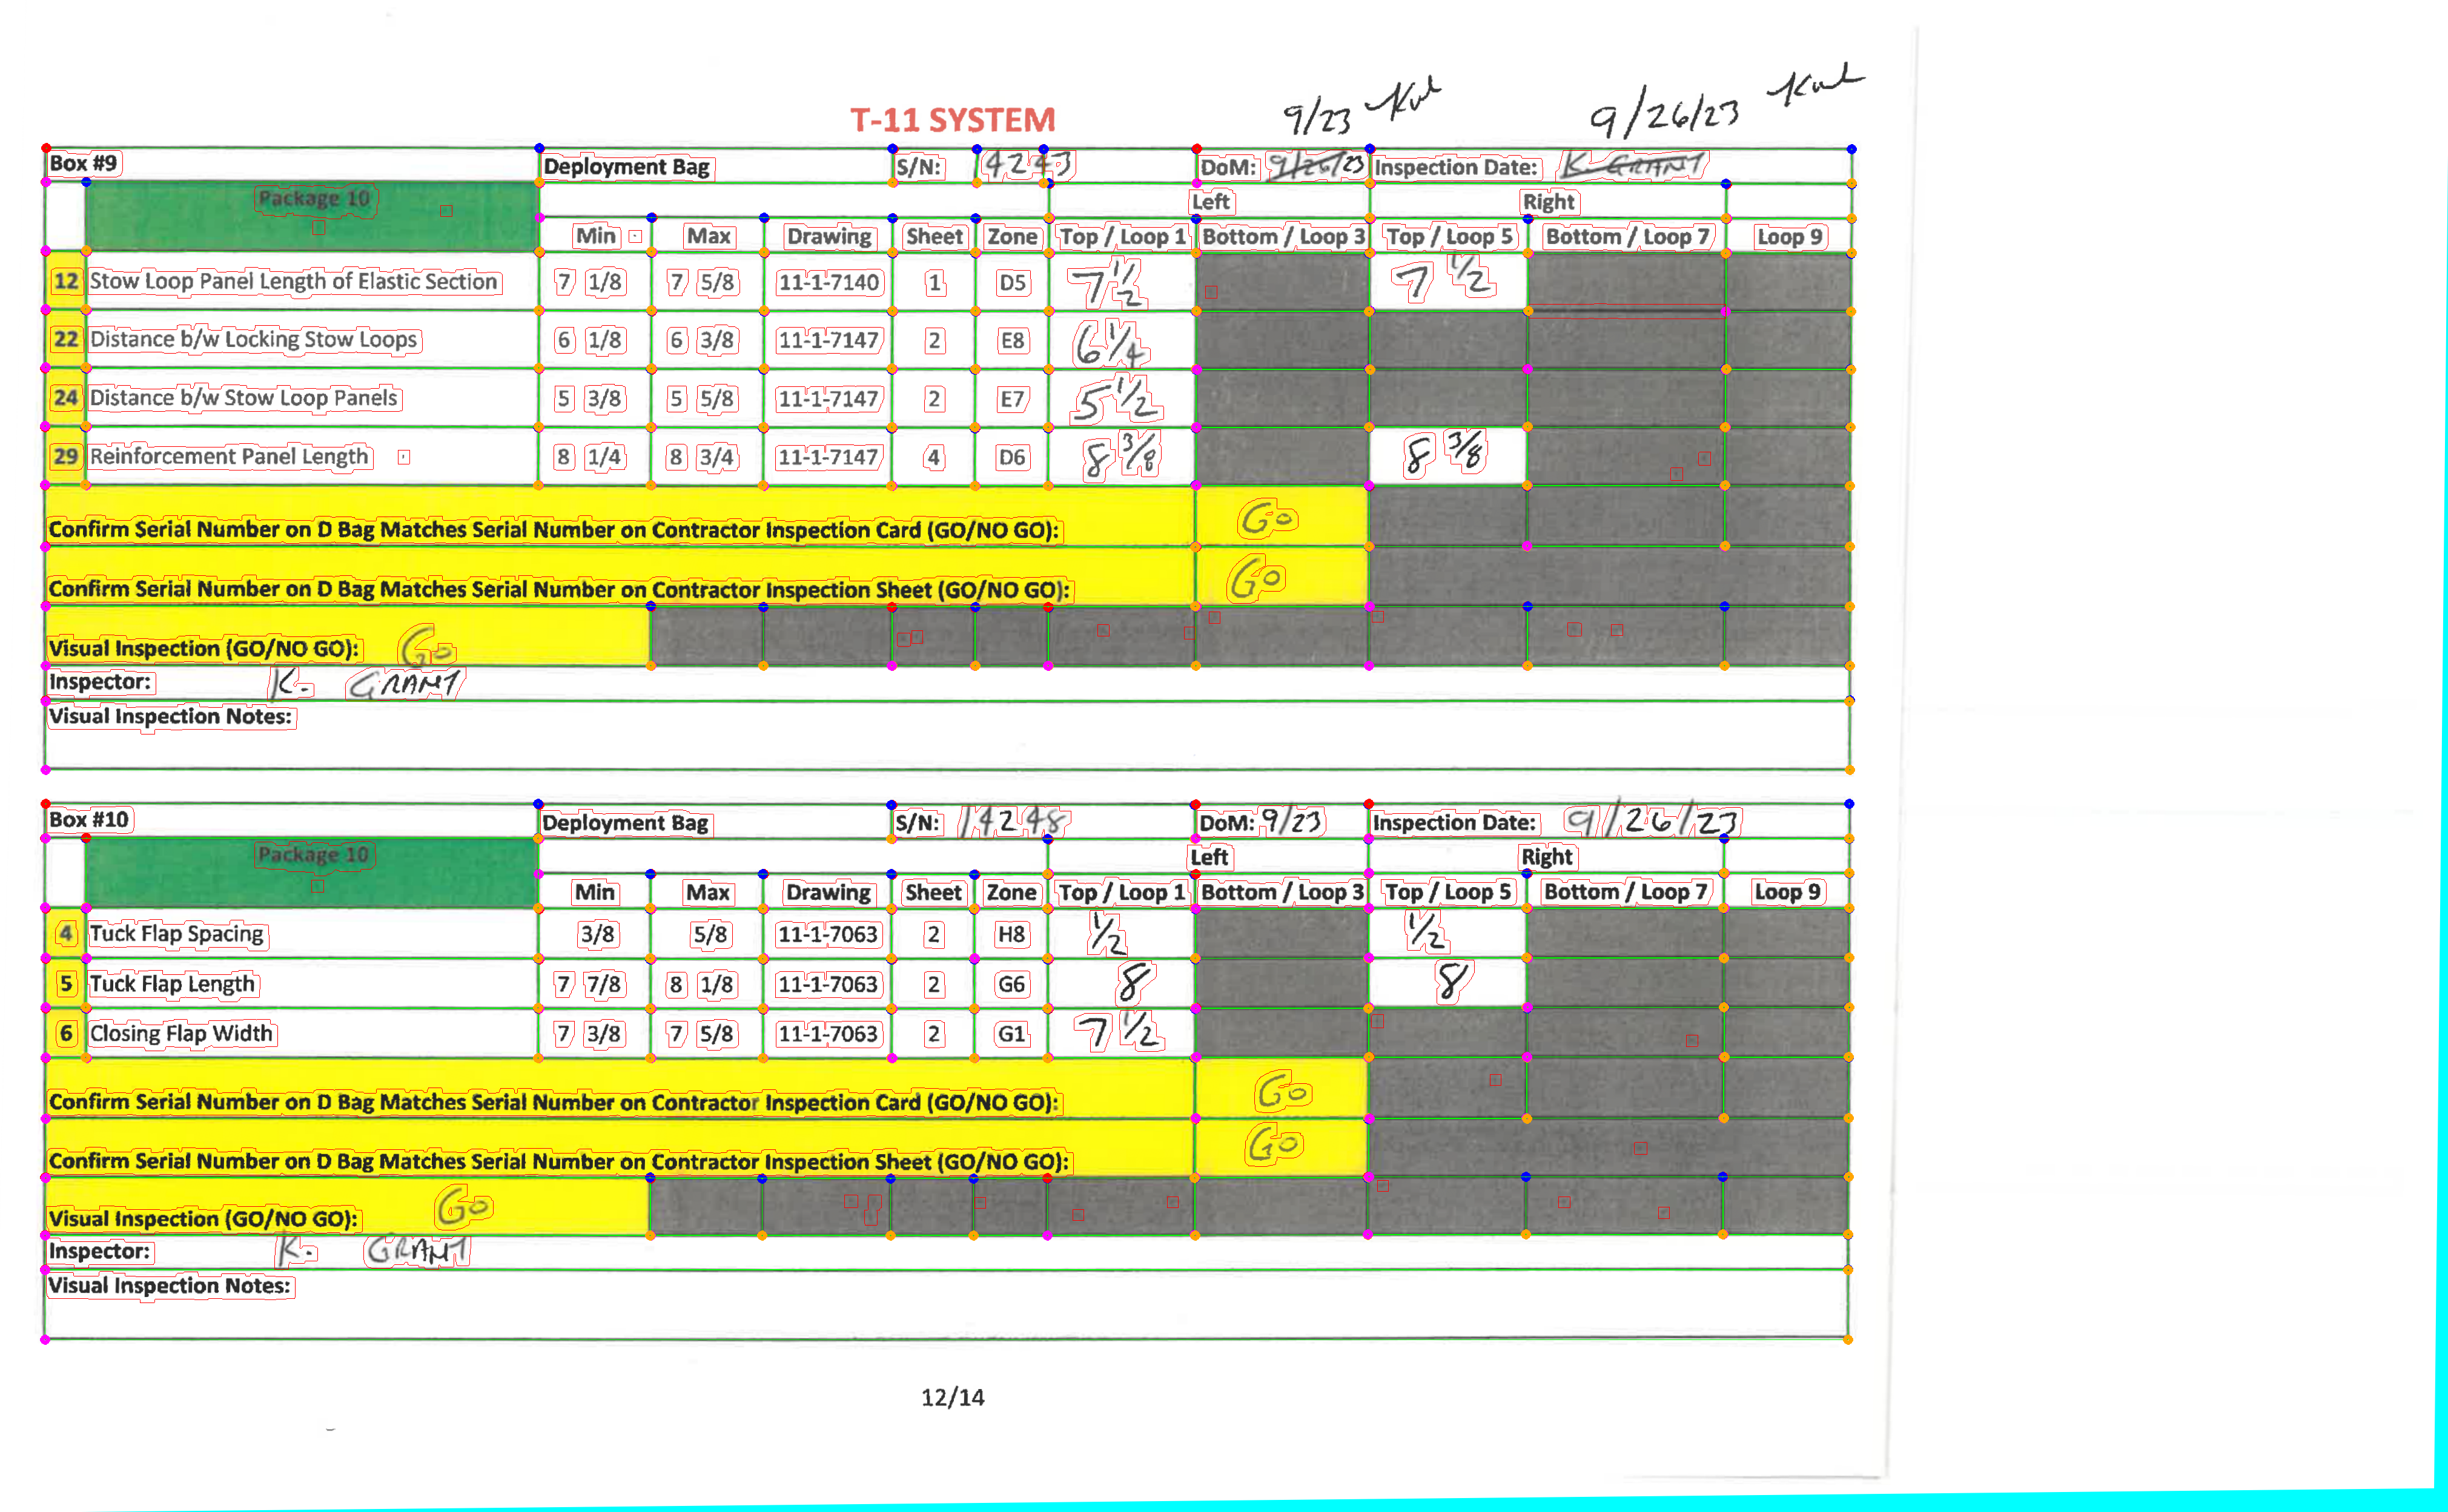 9/23 9/26/23
T-11 SYSTEM
Box #9 Deployment Bag S/N: 4243 DoM: 9/26/23 Inspection Date: K. GRANT
Package 10 Left Right
Min Max Drawing Sheet Zone Top / Loop 1 Bottom / Loop 3 Top / Loop 5 Bottom / Loop 7 Loop 9
12 Stow Loop Panel Length of Elastic Section 7 1/8 7 5/8 11-1-7140 1 D5 7 1/2 7 1/2
22 Distance b/w Locking Stow Loops 6 1/8 6 3/8 11-1-7147 2 E8 6 1/4
24 Distance b/w Stow Loop Panels 5 3/8 5 5/8 11-1-7147 2 E7 5 1/2
29 Reinforcement Panel Length 8 1/4 8 3/4 11-1-7147 4 D6 8 3/8 8 3/8
Confirm Serial Number on D Bag Matches Serial Number on Contractor Inspection Card (GO/NO GO): GO
Confirm Serial Number on D Bag Matches Serial Number on Contractor Inspection Sheet (GO/NO GO): GO
Visual Inspection (GO/NO GO): GO
Inspector: K. GRANT
Visual Inspection Notes:
Box #10 Deployment Bag S/N: 14248 DoM: 9/23 Inspection Date: 9/26/23
Package 10 Left Right
Min Max Drawing Sheet Zone Top / Loop 1 Bottom / Loop 3 Top / Loop 5 Bottom / Loop 7 Loop 9
4 Tuck Flap Spacing 3/8 5/8 11-1-7063 2 H8 1/2 1/2
5 Tuck Flap Length 7 7/8 8 1/8 11-1-7063 2 G6 8 8
6 Closing Flap Width 7 3/8 7 5/8 11-1-7063 2 G1 7 1/2
Confirm Serial Number on D Bag Matches Serial Number on Contractor Inspection Card (GO/NO GO): GO
Confirm Serial Number on D Bag Matches Serial Number on Contractor Inspection Sheet (GO/NO GO): GO
Visual Inspection (GO/NO GO): GO
Inspector: K. GRANT
Visual Inspection Notes:
12/14